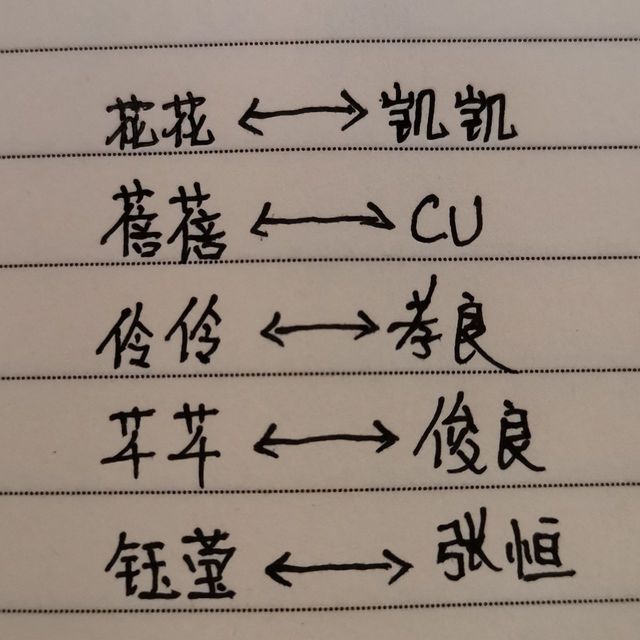 花花 ←→ 凯凯
蓓蓓 ←→ CU
伶伶 ←→ 孝良
芊芊 ←→ 俊良
钰莹 ←→ 张恒